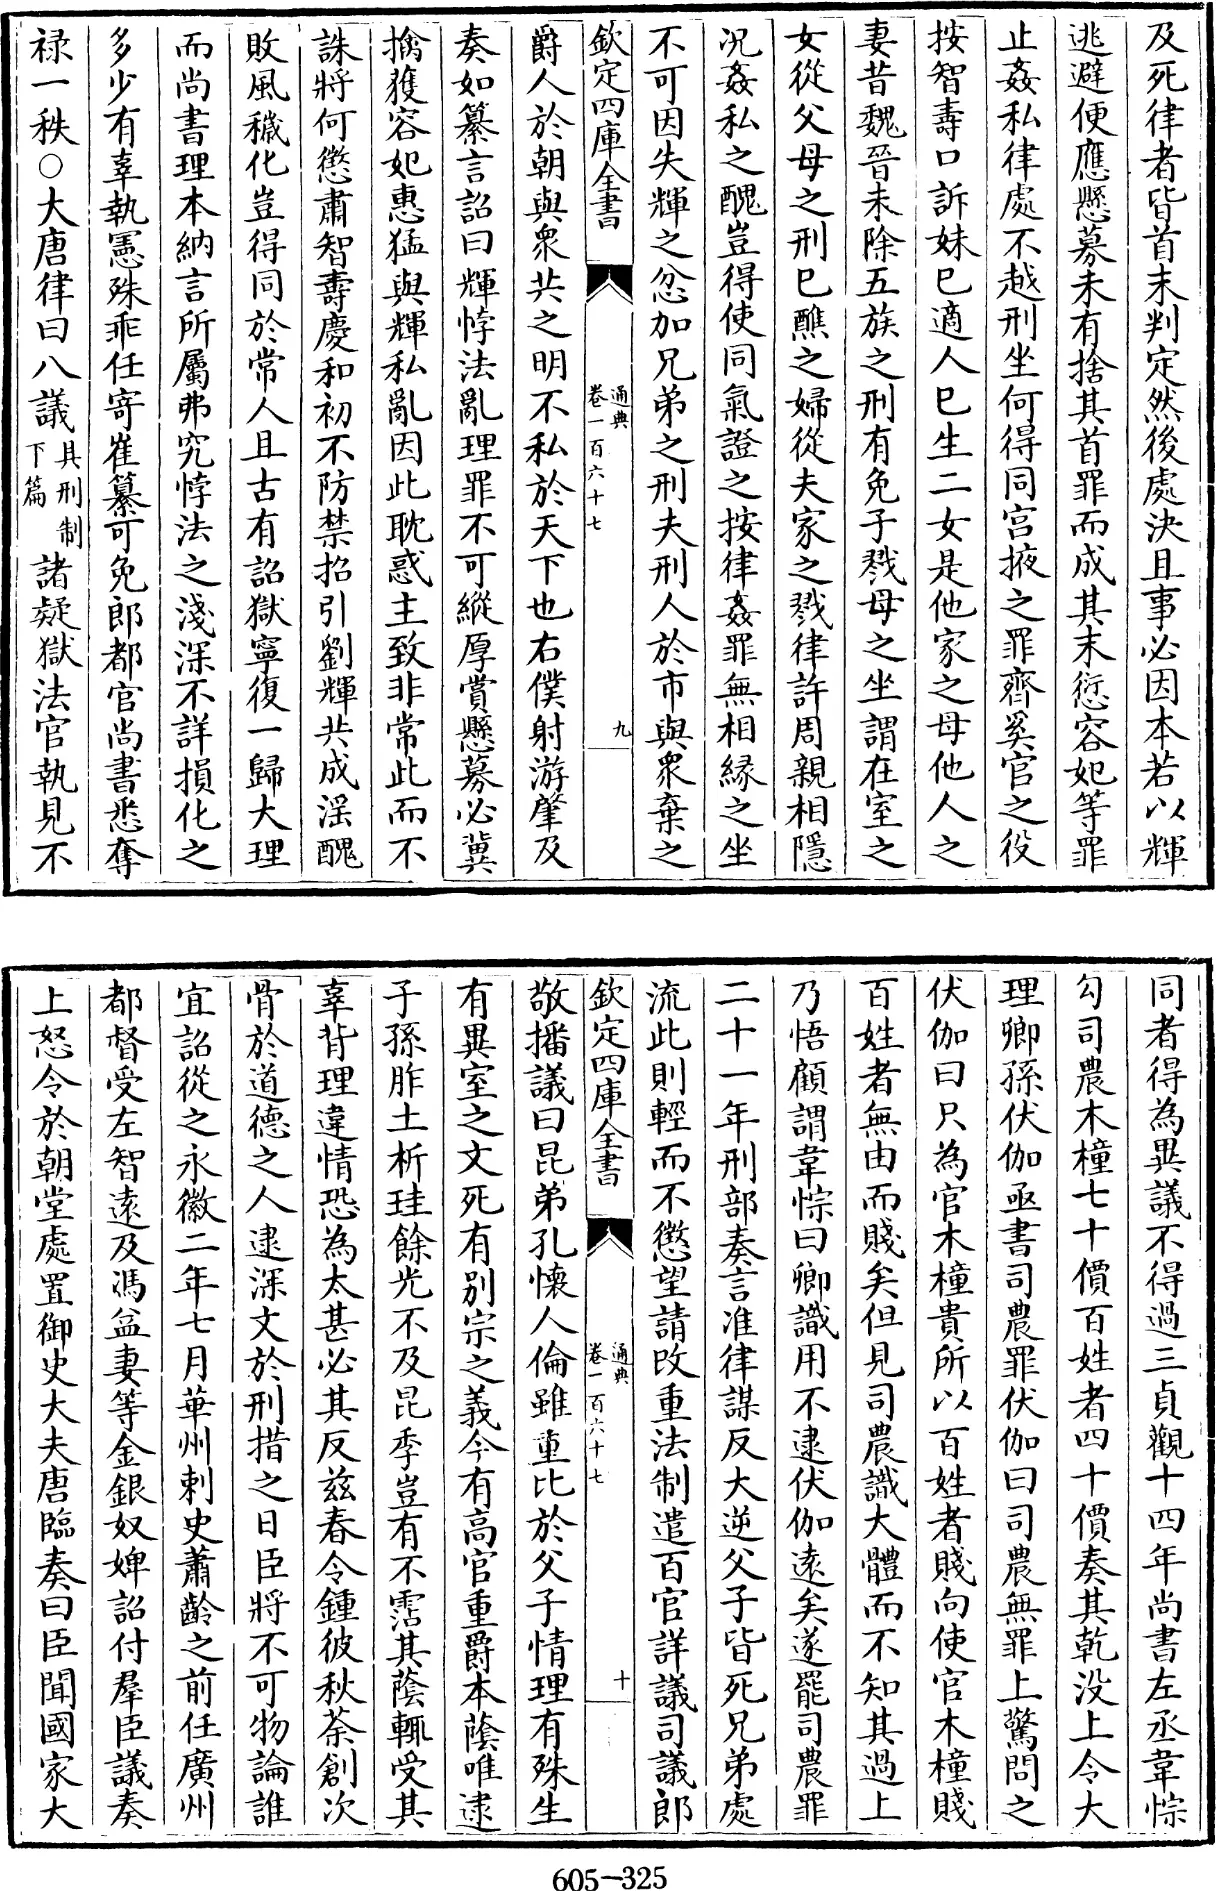 及死律者皆首末判定然後處決且事必因本若以輝
逃避便應懸募未有捨其首罪而成其末愆容妃等罪
止姦私律處不越刑坐何得同宫掖之罪齊奚官之役
按智壽口訴妹已適人已生二女是他家之母他人之
妻昔魏晉未除五族之刑有免子戮母之坐謂在室之
女從父母之刑已醮之婦從夫家之戮律許周親相隱
况姦私之醜豈得使同氣證之按律姦罪無相緣之坐
不可因失輝之忿加兄弟之刑夫刑人於市與衆棄之
欽定四庫全書
通典
卷一百六十七
九
爵人於朝與衆共之明不私於天下也右僕射游肇及
奏如纂言詔曰輝悖法亂理罪不可縱厚賞懸募必冀
擒獲容妃惠猛與輝私亂因此耽惑主致非常此而不
誅將何懲肅智壽慶和初不防禁招引劉輝共成淫醜
敗風穢化豈得同於常人且古有詔獄寧復一歸大理
而尚書理本納言所屬弗究悖法之淺深不詳損化之
多少有辜執憲殊乖任寄崔纂可免郎都官尚書悉奪
禄一秩○大唐律曰八議具刑制下篇諸疑獄法官執見不
同者得為異議不得過三貞觀十四年尚書左丞韋悰
勾司農木橦七十價百姓者四十價奏其乾没上令大
理卿孫伏伽亟書司農罪伏伽曰司農無罪上驚問之
伏伽曰只為官木橦貴所以百姓者賤向使官木橦賤
百姓者無由而賤矣但見司農識大體而不知其過上
乃悟顧謂韋悰曰卿識用不逮伏伽逺矣遂罷司農罪
二十一年刑部奏言准律謀反大逆父子皆死兄弟處
流此則輕而不懲望請改重法制遣百官詳議司議郎
欽定四庫全書
通典
卷一百六十七
十
敬播議曰昆弟孔懷人倫雖重比於父子情理有殊生
有異室之文死有别宗之義今有高官重爵本蔭唯逮
子孫胙土析珪餘光不及昆季豈有不霑其蔭輒受其
辜背理違情恐為太甚必其反兹春令踵彼秋荼創次
骨於道德之人逮深文於刑措之日臣將不可物論誰
宜詔從之永徽二年七月華州刺史蕭齡之前任廣州
都督受左智逺及馮盆妻等金銀奴婢詔付羣臣議奏
上怒令於朝堂處置御史大夫唐臨奏曰臣聞國家大
605-325